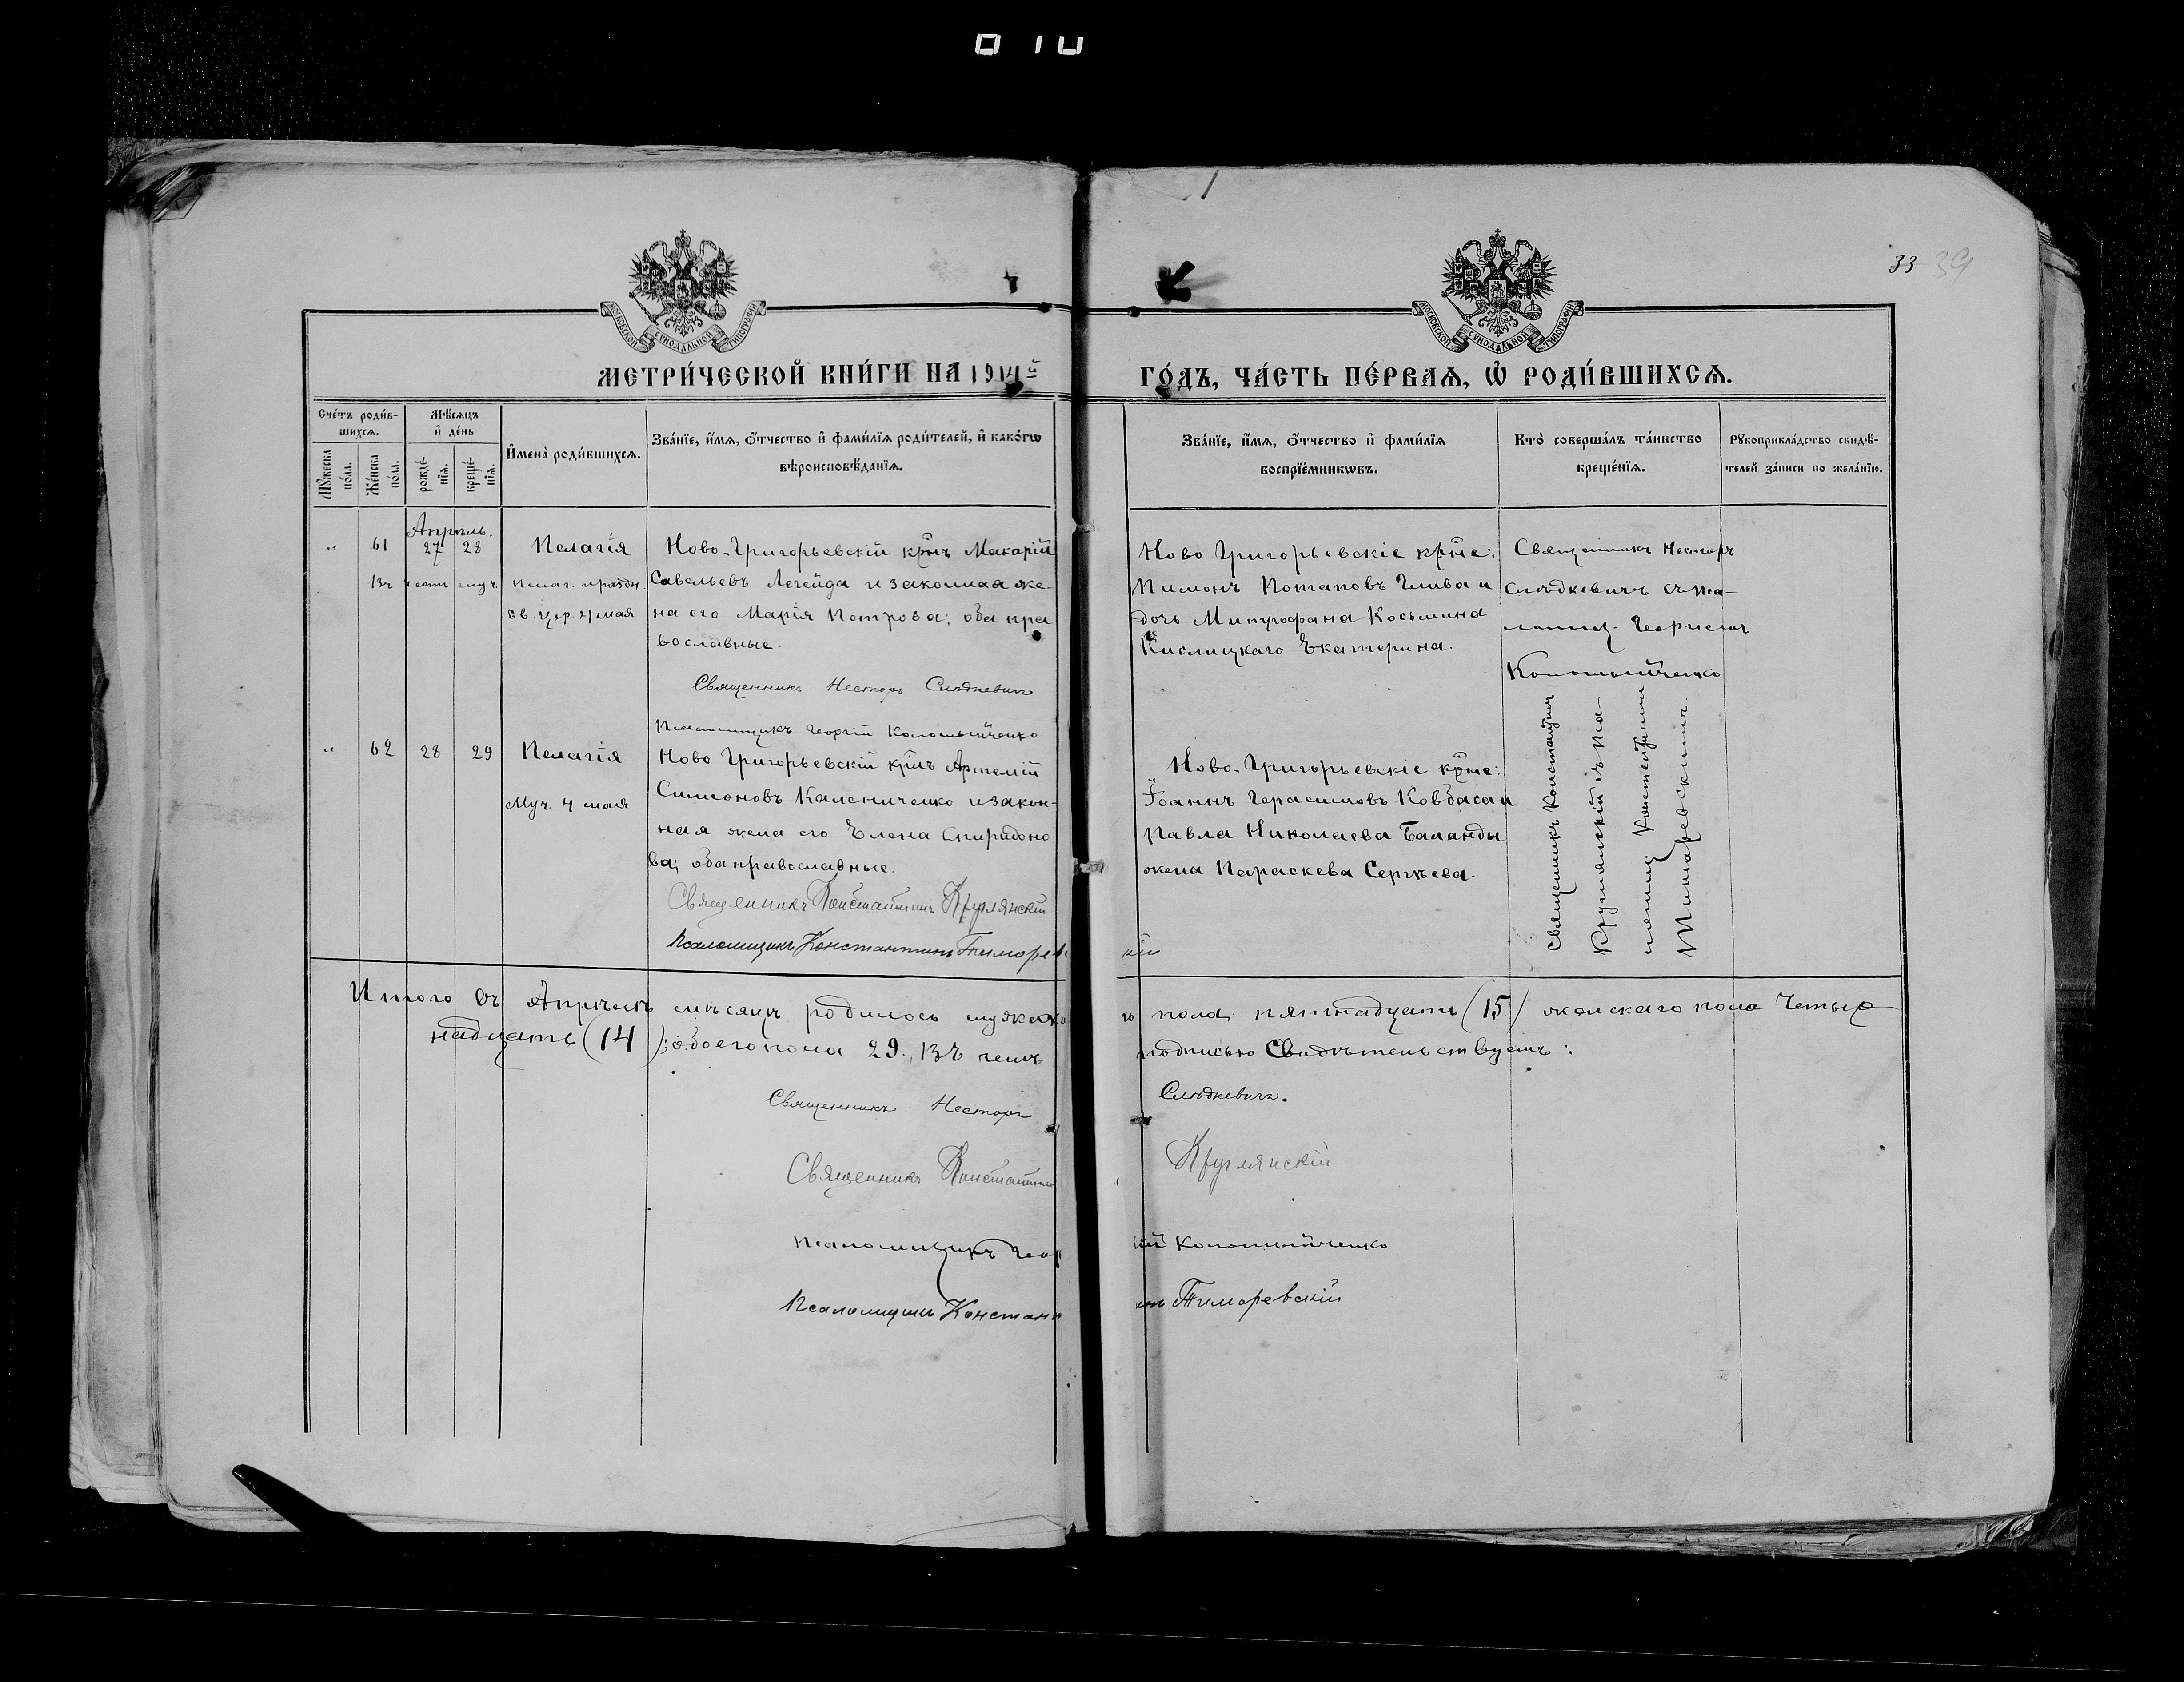 МОСКОВСКОЙ СѴНОДАЛЬНОЙ ТИПОГРАФІИ
МОСКОВСКОЙ СѴНОДАЛЬНОЙ ТИПОГРАФІИ
33 39
МЕТРИ́ЧЕСКОЙ КНИ́ГИ НА 1914й
ГО́ДЪ, ЧА́СТЬ ПЕ́РВАѦ, Ѡ҆ РОДИ́ВШИХСѦ.
Сче́тъ роди́в-
шихсѧ.
Мꙋ́жеска по́ла.
Же́нска по́ла.
Мѣ́сѧцъ и҆ де́нь
рожде́-нїѧ.
креще́-нїѧ.
И҆мена̀ роди́вшихсѧ.
Зва́нїе, и҆́мѧ, ѻ҆́тчество и҆ фами́лїѧ роди́телей, и҆ како́гѡ
вѣроисповѣ́данїѧ.
Зва́нїе, и҆́мѧ, ѻ҆́тчество и҆ фами́лїѧ
воспрїе́мникѡвъ.
Кто̀ соверша́лъ та́инство
креще́нїѧ.
Рꙋкоприкла́дство свидѣ́-
телей за́писи по жела́нїю.
Апрѣль.
" 61 27 28 Пелагія
Ново-Григорьевскій крнъ Макарій
Савельевъ Легейда и законная же-
на его Марія Петрова; оба пра
вославные.
Священникъ Несторъ Слюдкевичъ
Псаломщикъ Георгій Коломыйченко
св. цер. 4 мая
Ново Григорьевскіе крне:
Пимонъ Потаповъ Глива и
дочь Митрофана Косьмина
Кислицкаго Екатерина.
Священникъ Несторъ
Слюдкевичъ съ пса-
ломщ. Георгіемъ
Коломыйченко
" 62 28 29 Пелагія
Муч. 4 мая
Ново Григорьевскій крнъ Артемій
Симеоновъ Калениченко и закон-
ная жена его Елена Спиридоно-
ва; оба православные.
Священникъ Константинъ Круглянскій
Псаломщикъ Константинъ Тиморев
кій
Ново-Григорьевскіе крне:
Іоаннъ Герасимовъ Ковбаса и
Павла Николаева Баланды
жена Параскева Сергѣева.
Священникъ Константинъ
Круглянскій съ пса-
ломщ. Константиномъ
Тиморевскимъ
Итого въ Апрѣлѣ мѣсяцѣ родилось мужеско
го пола пятнадцать (15) женскаго пола Четыр
надцать (14); обоего пола 29., въ чемъ
подписью Свидѣтельствуемъ:
Священникъ Несторъ Слюдкевичъ.
Священникъ Константинъ Круглянскій
Псаломщикъ Георгій Коломыйченко
Псаломщикъ Константинъ Тиморевскій